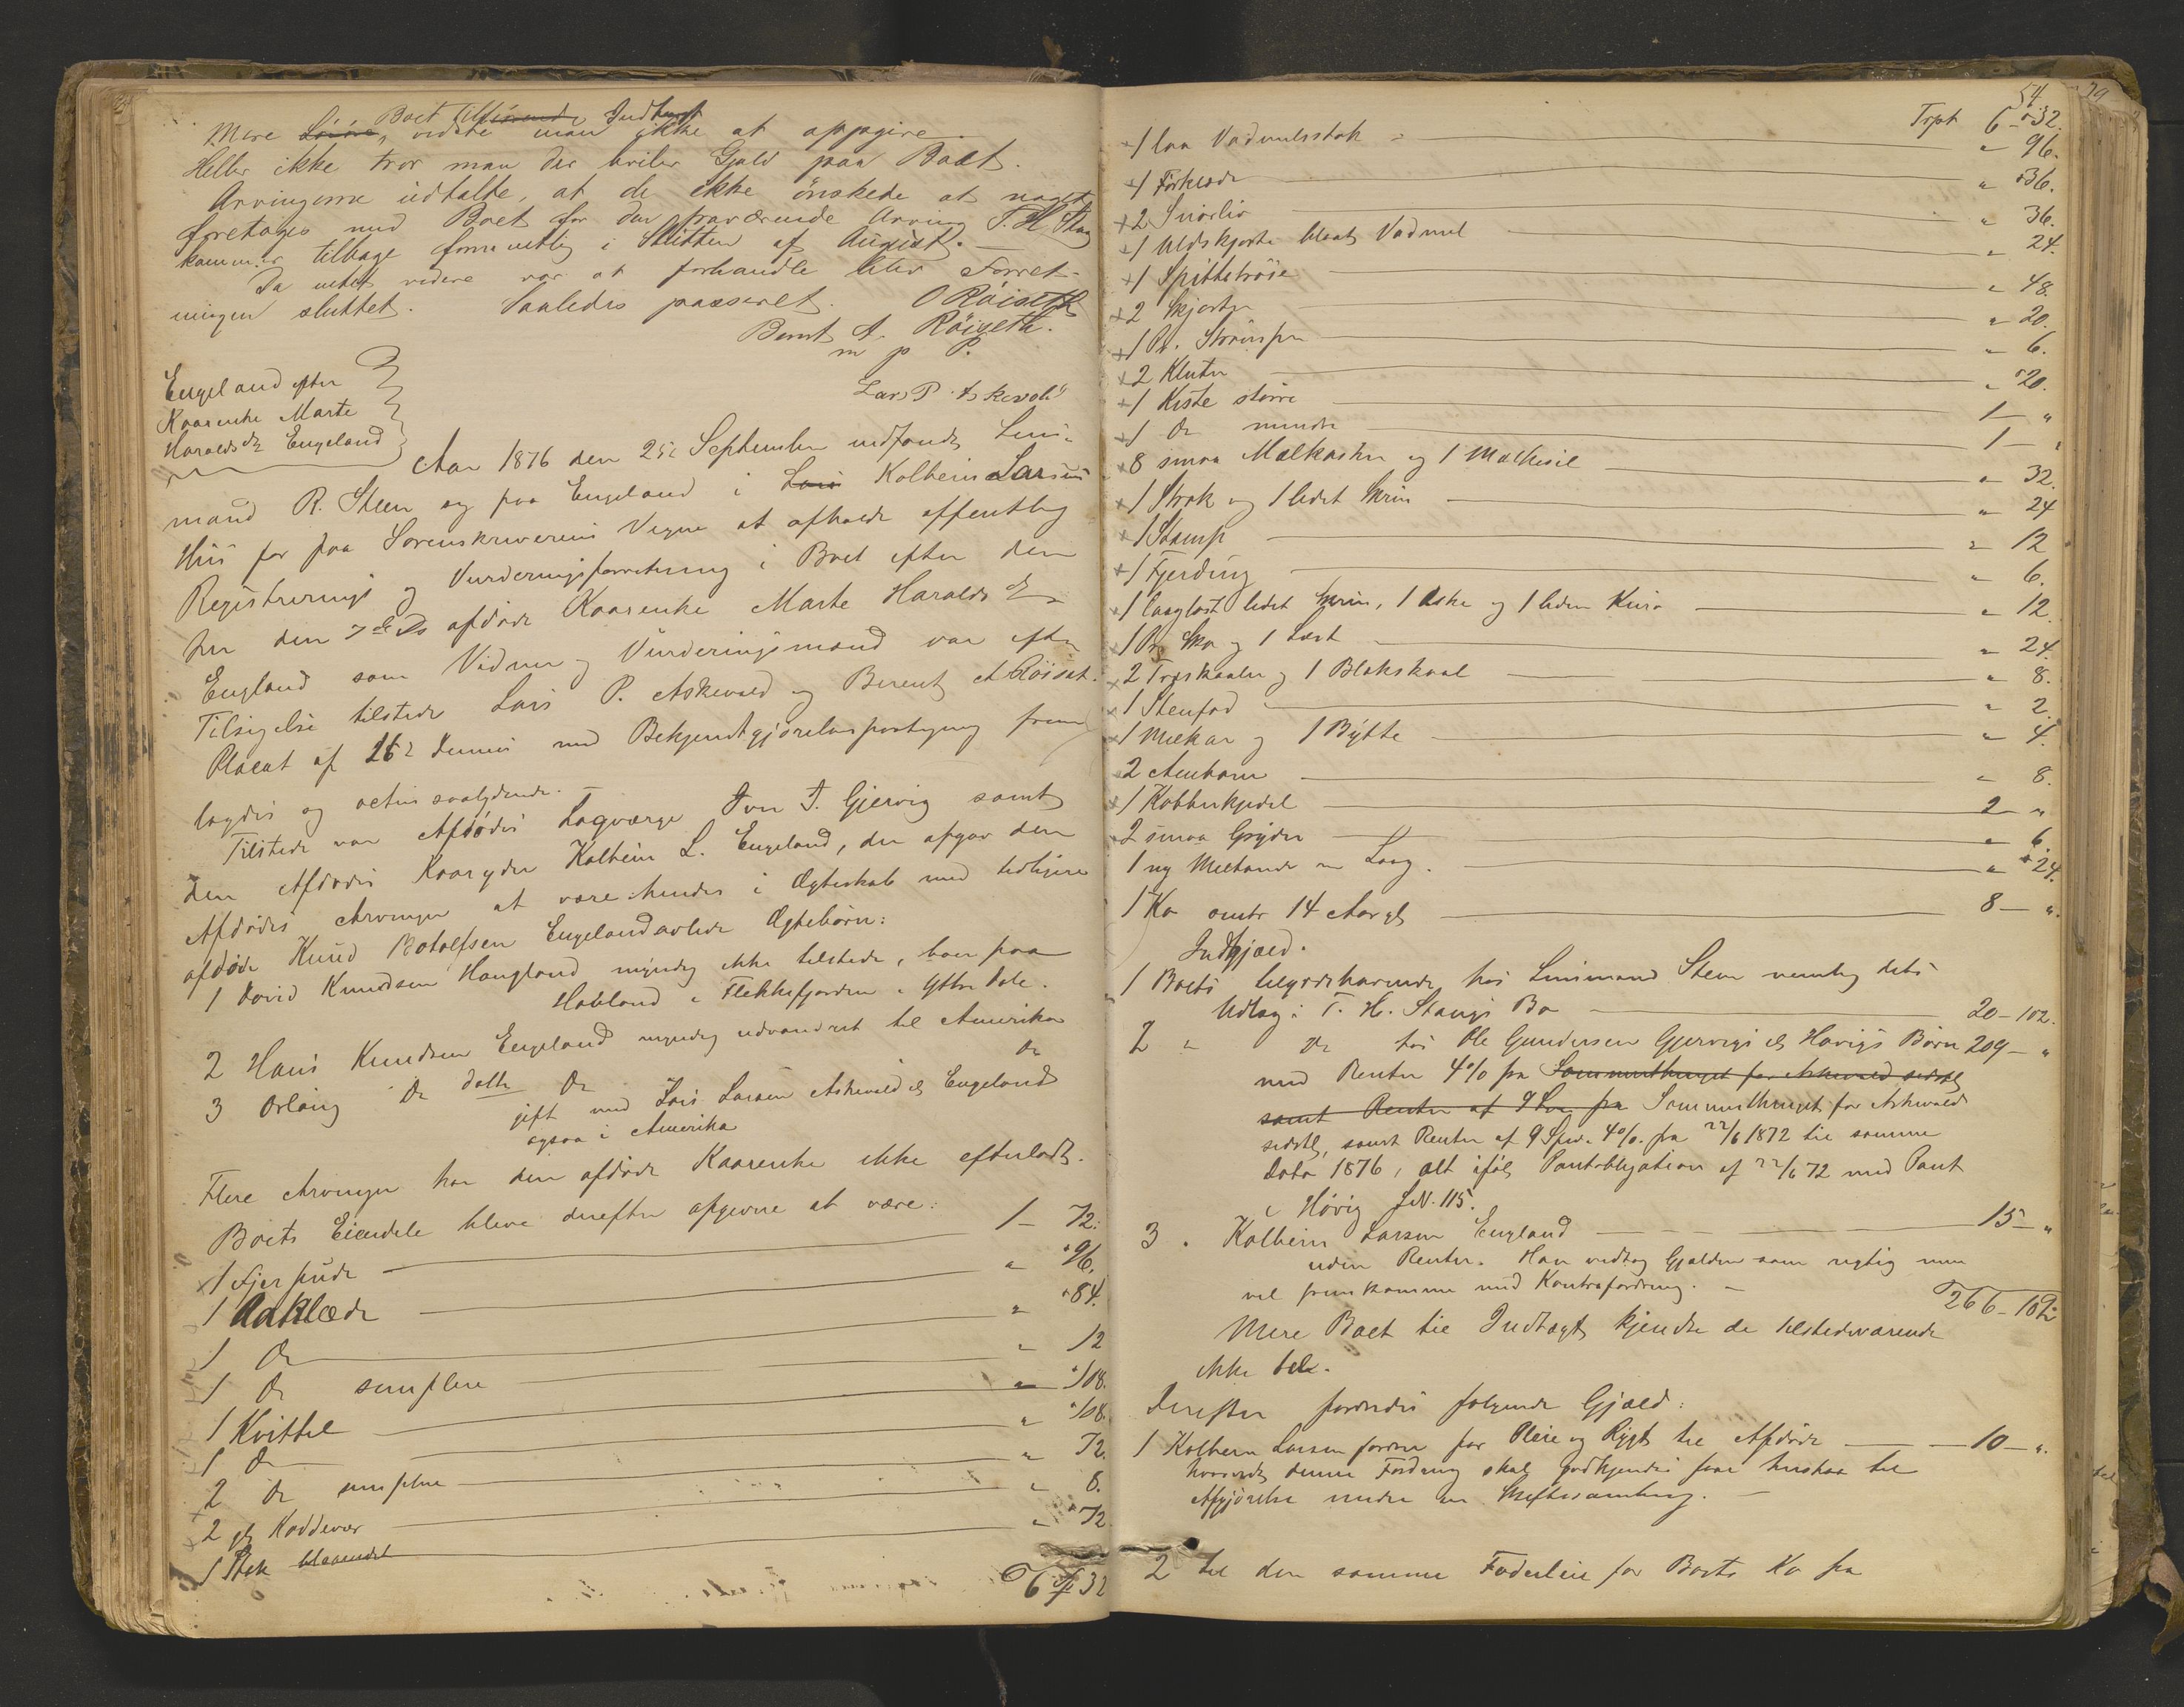 Boet Indtægt
Mere vidste man ikke at opgive.
Heller ikke tror man der hviler Gjæld paa Boet.
Arvingerne udtalte, at de ikke önskede at noget
foretages med Boet før den fraværende Arving T. H. Stang
kommer tilbage formentlig i Slutten af August. —
Da intet videre var at forhandle blev Forret-
ningen sluttet. Saaledes passeret. O Röiseth
Bernt A. Röiseth.
m p P.
Lars P. Askevold
Engeland efter
Kaarenke Marte
Haraldsdr Engeland
Aar 1876 den 25de September indfandt Lens-
mand R. Steen sig paa Engeland i Kolbein Larsens
Hus for paa Sorenskriverens Vegne at afholde offentlig
Registrerings og Vurderingsforretning i Boet efter den
her den 7de Ds afdöde Kaarenke Marte Haraldsdr
Engeland som Vidner og Vurderingsmænd var efter
Tilsigelse tilstede Lars P. Askevold og Berent A Röiset.
Placat af 16de dennes med Bekjendtgjörelsespaategning frem-
lagdes og acten saalydende. —
Tilstede var Afdödes Lagværge Iver T. Gjervig samt
den Afdödes Kaaryder Kolbein L. Engeland, der opgav den
Afdödes Arvinger at være hendes i Ægteskab med tidligere
afdöde Knud Rotolfsen Engeland avlede Ægtebörn:
1 David Knudsen Haugland myndig ikke tilstede, boer paa
Hovland i Flekkefjorden i Yttre Dale.
2 Hans Knudsen Engeland myndig udvandret til Amerika
3 Erlang do datter do do
gift med Lars Larsen Askevold og Engeland
ogsaa i Amerika
Flere Arvinger har den afdöde Kaarenke ikke efterladt.
Boets Eiendele bleve derefter opgivne at være:
1 Fjer pude — 1 — 72.
1 Aaklæde — " 96.
1 do — " 84.
1 do simplere — " 12
1 Kvittel — " 108.
1 do — " 108.
2 do simplere — " 72.
2 gl Koddevær — " 8.
1 Stak blaaendet — " 72
6 Sp 32
54.
Trpt 6 — 32.
1 laa Vadmelsstak — " 96.
1 Forklæde — " 36.
2 Snörliv — " 36.
1 Uldskjorte blaat Vadmel — " 24.
1 Spittetröie — " 48.
2 Skjorter — " 20.
1 Pr. Strömper — " 6.
2 Kluter — " 20.
1 Kiste större — 1 — "
1 do mindre — 1 — "
8 smaa Melkaasker og 1 Melkesil — " 32.
1 Strok og 1 lidet Skrin — " 24
1 Stamp — " 12
1 Fjerding — " 6.
1 laaglöst lidet Skrin, 1 Aske og 1 liden Kurv — " 12.
1 Pr Sko og 1 Læst — " 24.
2 Træskaaler og 1 Blekskaal — " 8.
1 Stenfad — " 2.
1 Melkar og 1 Bytte — " 4.
2 Ambarer — " 8.
1 Kobberkjedel — 2 — "
2 smaa Gryder — " 6.
1 ny Meltønde m Laag. — " 24.
1 Ko omtr 14 Aar gl — 8 — ".
Indgjæld.
1 Boets tilgodehavende hos Lensmand Steen nemlig dets
Udlæg i T. H. Stangs Bo — 20 — 102.
2 " do hos Ole Gundersen Gjervigs og Hovigs Börn 209 — "
med Renter 4% fra Sommerthinget for Askevold sidstl
samt Renter af 9 Spd. fra Sommerthinget for Askevold
sidstl, samt Renter af 9 Spd. 4%. fra 22/6 1872 til samme
Dato 1876, alt ifølg Pantobligation af 22/6 72 med Pant
i Hövig LN. 115.
3 . Kolbein Larsen Engeland — 15 — "
uden Renter. Han vedtog Gjælden som rigtig men
vil fremkomme med Kontrafordring. —
266 — 102
Mere Boet til Indtægt kjendte de tilstedeværende
ikke til.
Derefter fordredes følgende Gjæld:
1 Kolbein Larsen fordrer for Pleie og Rygt til Afdöde — 10 — ".
hvorvidt denne Fordring skal godkjendes faar henstaa til
Afgjörelse under en Skiftesamling. —
2 til den samme Foderleie for Boets Ko fra